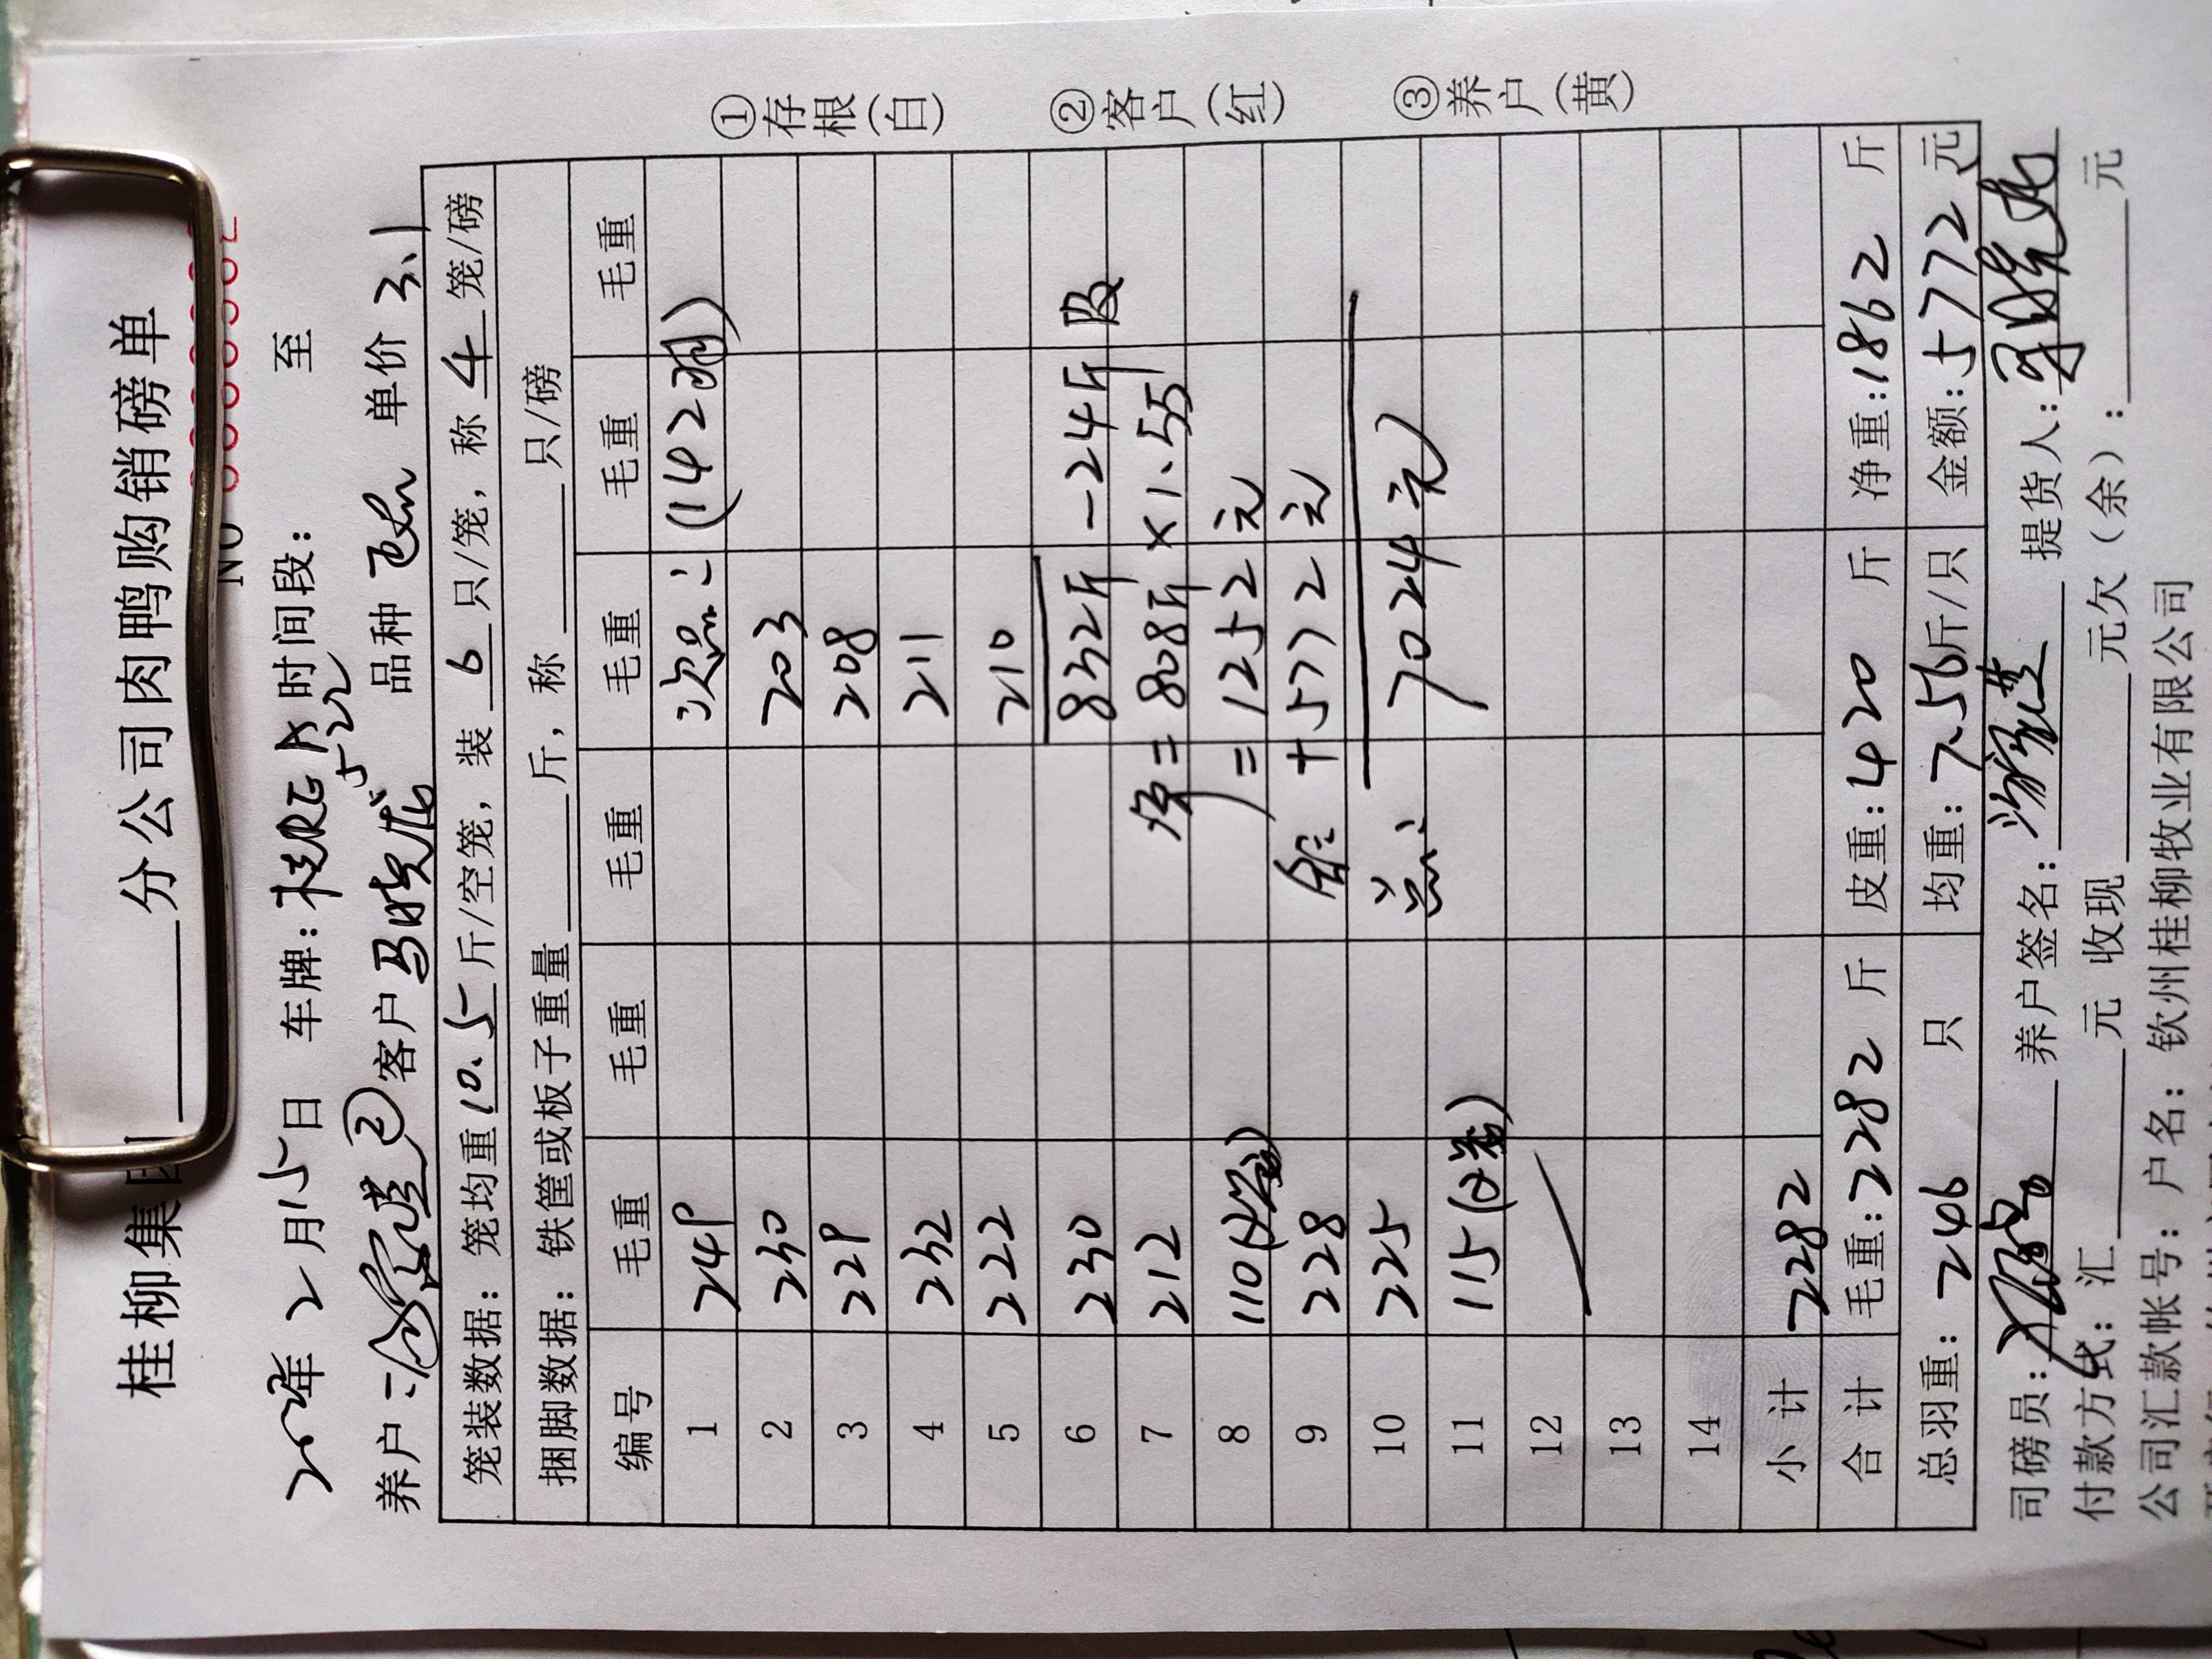 桂柳集团 分公司肉鸭购销磅单
NO
2月15日 车牌: 时间段: 至
养户: ② 客户 马晓龙 品种 单价 3.1
笼装数据: 笼均重 10.5 斤/空笼, 装 6 只/笼, 称 4 笼/磅
捆脚数据: 铁筐或板子重量 斤, 称 只/磅
编号 毛重 毛重 毛重 毛重 毛重 毛重
1 249 次品: (142羽)
2 230 203
3 229 208
4 232 211
5 222 210
6 230 832斤 -24斤
7 212 = 808斤 ×1.55
8 110 = 1252元
9 228 + 5772元
10 225 7024元
11 115
12
13
14
小计 2282
合计 毛重: 2282 斤 皮重: 420 斤 净重: 1862 斤
总羽重: 246 只 均重: 7.56 斤/只 金额: 5772 元
司磅员: 养户签名: 提货人:
付款方式: 汇 元 收现 元欠(余): 元
公司汇款帐号: 户名: 钦州桂柳牧业有限公司
①存根(白) ②客户(红) ③养户(黄)